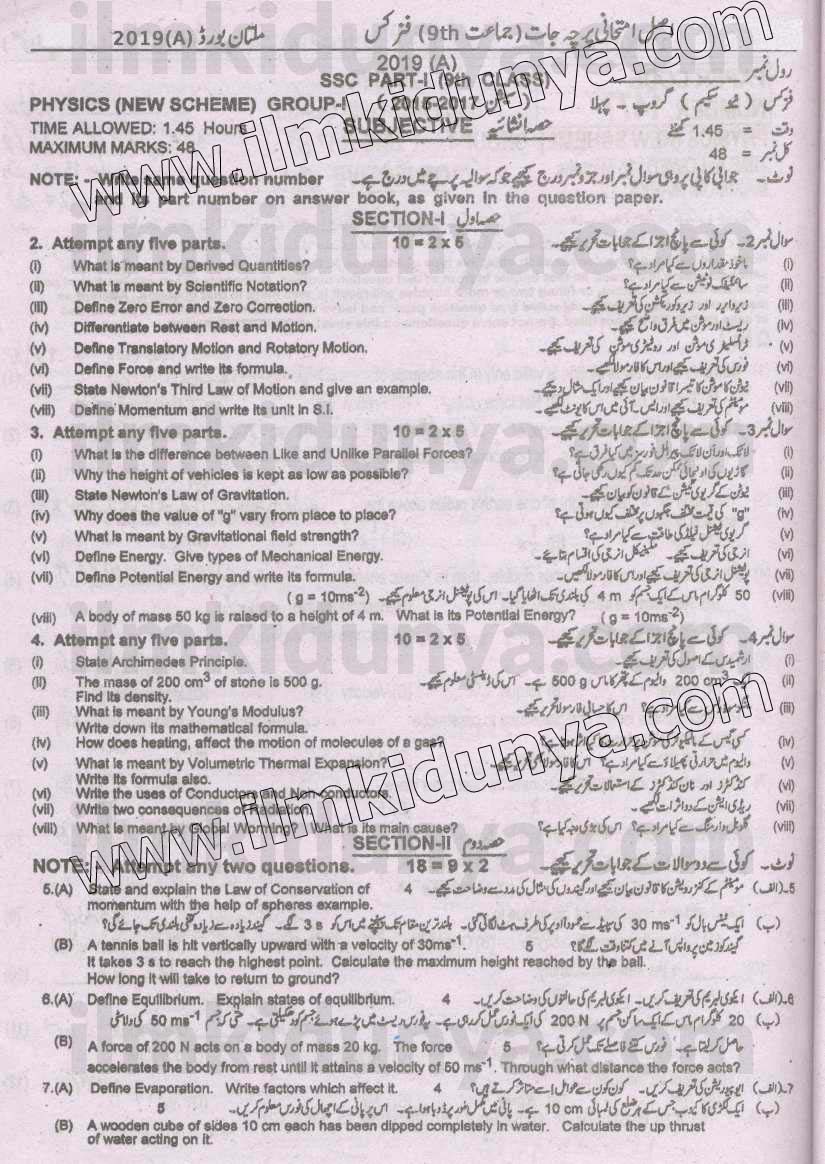 اصل امتحانی پرچہ جات (جماعت 9th) فزکس ملتان بورڈ 2019(A)
2019 (A) رول نمبر
SSC PART-I (9th CLASS)
PHYSICS (NEW SCHEME) GROUP-I فزکس (نیو سکیم) گروپ ۔ پہلا
TIME ALLOWED: 1.45 Hours SUBJECTIVE حصہ انشائیہ وقت = 1.45 گھنٹے
MAXIMUM MARKS: 48 کل نمبر = 48
NOTE: - Write same question number نوٹ۔ جوابی کاپی پر وہی سوال نمبر اور جزو نمبر درج کیجیے جو کہ سوالیہ پرچے میں درج ہے۔
and its part number on answer book, as given in the question paper.
SECTION-I حصہ اول
2. Attempt any five parts. 10 = 2 x 5 سوال نمبر 2۔ کوئی سے پانچ اجزا کے جوابات تحریر کیجیے۔
(i) What is meant by Derived Quantities? ماخوذ مقداروں سے کیا مراد ہے؟ (i)
(ii) What is meant by Scientific Notation? سائنٹیفک نوٹیشن سے کیا مراد ہے؟ (ii)
(iii) Define Zero Error and Zero Correction. زیرو ایرر اور زیرو کوریکشن کی تعریف کیجیے۔ (iii)
(iv) Differentiate between Rest and Motion. ریسٹ اور موشن میں فرق واضح کیجیے۔ (iv)
(v) Define Translatory Motion and Rotatory Motion. ٹرانسلیٹری موشن اور روٹیٹری موشن کی تعریف کیجیے۔ (v)
(vi) Define Force and write its formula. فورس کی تعریف کیجیے اور اس کا فارمولا لکھیے۔ (vi)
(vii) State Newton's Third Law of Motion and give an example. نیوٹن کا موشن کا تیسرا قانون بیان کیجیے اور ایک مثال دیجیے۔ (vii)
(viii) Define Momentum and write its unit in S.I. مومنٹم کی تعریف کیجیے اور ایس۔آئی میں اس کا یونٹ لکھیے۔ (viii)
3. Attempt any five parts. 10 = 2 x 5 سوال نمبر 3۔ کوئی سے پانچ اجزا کے جوابات تحریر کیجیے۔
(i) What is the difference between Like and Unlike Parallel Forces? لائک اور ان لائک پیرالل فورسز میں کیا فرق ہے؟ (i)
(ii) Why the height of vehicles is kept as low as possible? گاڑیوں کی اونچائی ممکن حد تک کم کیوں رکھی جاتی ہے؟ (ii)
(iii) State Newton's Law of Gravitation. نیوٹن کے گریوی ٹیشن کے قانون کو بیان کیجیے۔ (iii)
(iv) Why does the value of "g" vary from place to place? "g" کی قیمت مختلف جگہوں پر مختلف کیوں ہوتی ہے؟ (iv)
(v) What is meant by Gravitational field strength? گریوی ٹیشنل فیلڈ کی طاقت سے کیا مراد ہے؟ (v)
(vi) Define Energy. Give types of Mechanical Energy. انرجی کی تعریف کیجیے۔ مکینیکل انرجی کی اقسام بتائیے۔ (vi)
(vii) Define Potential Energy and write its formula. پوٹینشل انرجی کی تعریف کیجیے اور اس کا فارمولا لکھیں۔ (vii)
(g = 10ms⁻²) 50 کلوگرام ماس کے ایک جسم کو 4 m کی بلندی تک اٹھایا گیا۔ اس کی پوٹینشل انرجی معلوم کیجیے۔ (viii)
(viii) A body of mass 50 kg is raised to a height of 4 m. What is its Potential Energy? (g = 10ms⁻²)
4. Attempt any five parts. 10 = 2 x 5 سوال نمبر 4۔ کوئی سے پانچ اجزا کے جوابات تحریر کیجیے۔
(i) State Archimedes Principle. ارشمیدس کے اصول کی تعریف کیجیے۔ (i)
(ii) The mass of 200 cm³ of stone is 500 g. 200 cm³ والیوم کے پتھر کا ماس 500 g ہے۔ اس کی ڈینسٹی معلوم کیجیے۔ (ii)
Find its density.
(iii) What is meant by Young's Modulus? سے کیا مراد ہے؟ اس کا حسابی فارمولا تحریر کیجیے۔ (iii)
Write down its mathematical formula.
(iv) How does heating, affect the motion of molecules of a gas? کسی گیس کے (iv)
(v) What is meant by Volumetric Thermal Expansion? والیوم میں حرارتی پھیلاؤ سے کیا مراد ہے؟ اس کا فارمولا بھی لکھیے۔ (v)
Write its formula also.
(vi) Write the uses of Conductors and Non-conductors. کنڈکٹرز اور نان کنڈکٹرز کے استعمالات تحریر کیجیے۔ (vi)
(vii) Write two consequences of Radiation. ریڈی ایشن کے دو اثرات لکھیے۔ (vii)
(viii) What is meant by Global Worming? What is its main cause? گلوبل وارمنگ سے کیا مراد ہے؟ اس کی بڑی وجہ کیا ہے؟ (viii)
SECTION-II حصہ دوم
NOTE: Attempt any two questions. 18 = 9 x 2 نوٹ۔ کوئی سے دو سوالات کے جوابات تحریر کیجیے۔
5.(A) State and explain the Law of Conservation of 4 مومنٹم کے کنزرویشن کا قانون بیان کیجیے اور گیندوں کی مثال کی مدد سے وضاحت کیجیے۔ 5۔(الف)
momentum with the help of spheres example.
(ب) ایک ٹینس بال کو 30 ms⁻¹ کی سپیڈ سے عموداً اوپر کی طرف ہٹ لگائی گئی۔ بلند ترین مقام تک پہنچنے میں اس کو 3 s لگے۔ گیند زیادہ سے زیادہ کتنی بلندی تک جائے گی؟
(B) A tennis ball is hit vertically upward with a velocity of 30ms⁻¹. 5 گیند کو زمین پر واپس آنے میں کتنا وقت لگے گا؟
It takes 3 s to reach the highest point. Calculate the maximum height reached by the ball.
How long it will take to return to ground?
6.(A) Define Equilibrium. Explain states of equilibrium. 4 ایکوی لبریم کی تعریف کریں۔ ایکوی لبریم کی حالتوں کی وضاحت کریں۔ 6۔(الف)
(ب) 20 کلوگرام ماس کے ایک ساکن جسم پر 200 N کی ایک فورس عمل کر رہی ہے۔ یہ فورس ریسٹ میں پڑے ہوئے جسم کو دھکیلتی ہے۔ حتیٰ کہ جسم 50 ms⁻¹ کی ولاسٹی
(B) A force of 200 N acts on a body of mass 20 kg. The force 5 حاصل کر لیتا ہے۔ فورس کتنے فاصلے تک عمل کرتی ہے؟
accelerates the body from rest until it attains a velocity of 50 ms⁻¹. Through what distance the force acts?
7.(A) Define Evaporation. Write factors which affect it. 4 ایوپوریشن کی تعریف کریں۔ کون کون سے عوامل اسے متاثر کرتے ہیں؟ 7۔(الف)
(ب) ایک لکڑی کا کیوب جس کے ہر ضلع کی لمبائی 10 cm ہے۔ پانی میں مکمل طور پر ڈوبا ہوا ہے۔ اس پر پانی کے اچھال کی فورس معلوم کریں۔ 5
(B) A wooden cube of sides 10 cm each has been dipped completely in water. Calculate the up thrust
of water acting on it.
www.ilmkidunya.com
www.ilmkidunya.com